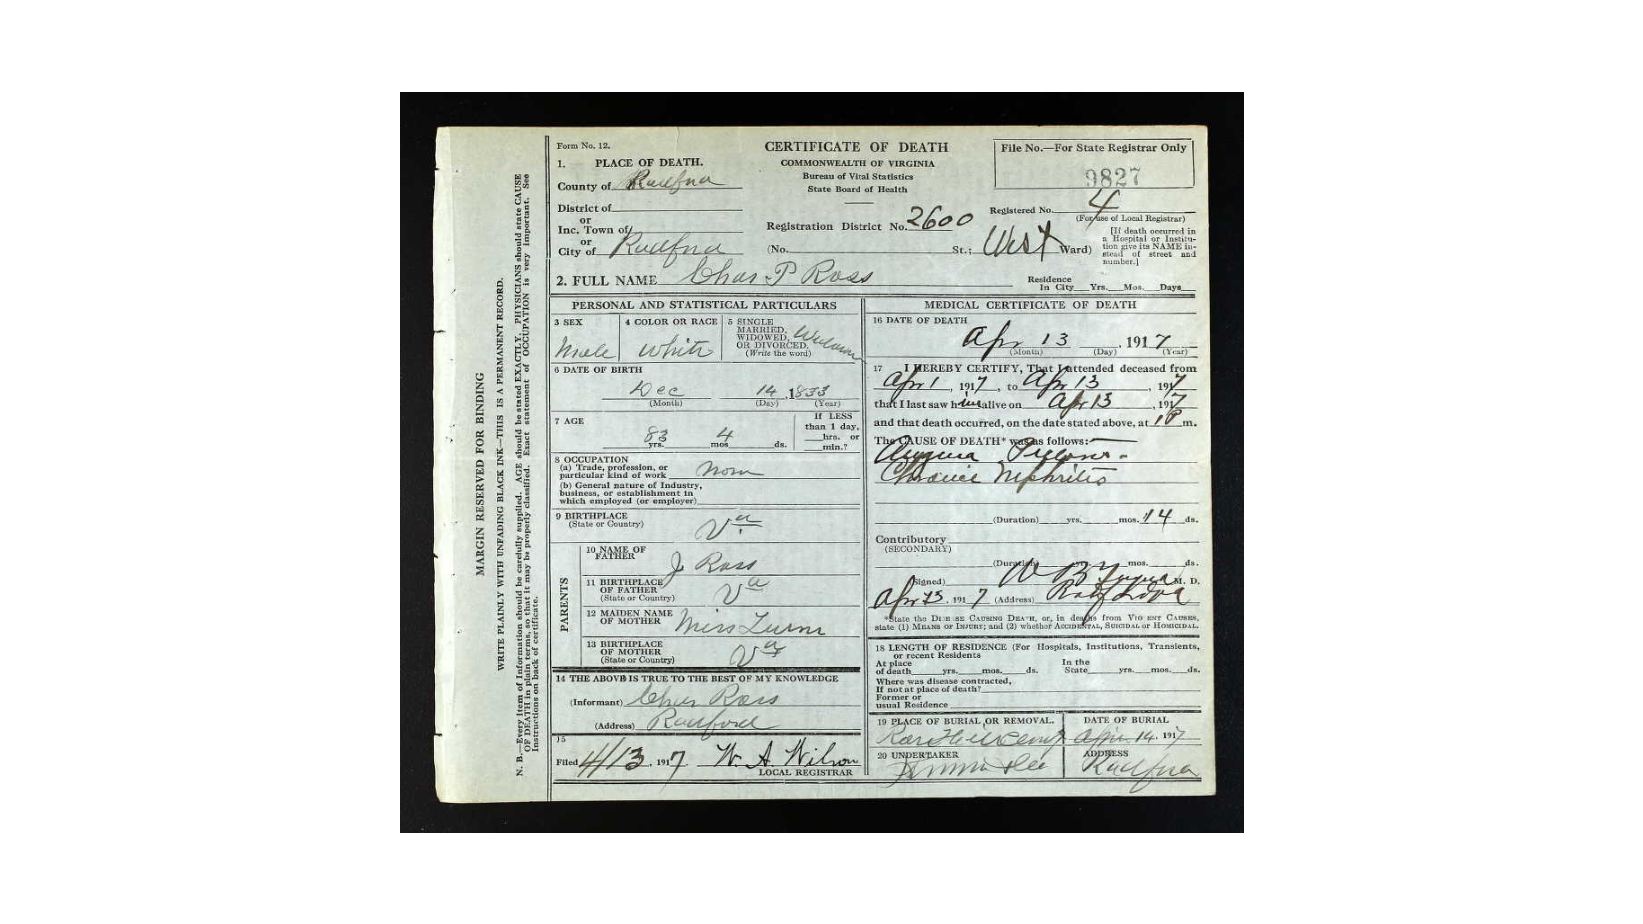 MARGIN RESERVED FOR BINDING
WRITE PLAINLY WITH UNFADING BLACK INK—THIS IS A PERMANENT RECORD.
N. B.—Every item of information should be carefully supplied. AGE should be stated EXACTLY. PHYSICIANS should state CAUSE
OF DEATH in plain terms, so that it may be properly classified. Exact statement of OCCUPATION is very important. See
instructions on back of certificate.
Form No. 12.
CERTIFICATE OF DEATH
COMMONWEALTH OF VIRGINIA
Bureau of Vital Statistics
State Board of Health
File No.—For State Registrar Only
9827
1. PLACE OF DEATH.
County of Radford
District of
or
Inc. Town of
or
City of Radford
Registration District No. 2600
Registered No. 4
(For use of Local Registrar)
(No. St.; West Ward)
[If death occurred in
a Hospital or Institu-
tion give its NAME in-
stead of street and
number.]
2. FULL NAME Chas P Ross
Residence
In City Yrs. Mos. Days
PERSONAL AND STATISTICAL PARTICULARS
3 SEX
Male
4 COLOR OR RACE
White
5 SINGLE
MARRIED,
WIDOWED,
OR DIVORCED.
(Write the word)
6 DATE OF BIRTH
Dec 14, 1833
(Month) (Day) (Year)
7 AGE
83 yrs. 4 mos ds.
If LESS
than 1 day,
hrs. or
min.?
8 OCCUPATION
(a) Trade, profession, or
particular kind of work
(b) General nature of Industry,
business, or establishment in
which employed (or employer)
9 BIRTHPLACE
(State or Country) Va
PARENTS
10 NAME OF
FATHER J Ross
11 BIRTHPLACE
OF FATHER
(State or Country) Va
12 MAIDEN NAME
OF MOTHER Miss
13 BIRTHPLACE
OF MOTHER
(State or Country) Va
14 THE ABOVE IS TRUE TO THE BEST OF MY KNOWLEDGE
(Informant) Chas Ross
(Address) Radford
15
Filed 4/13, 1917 W. A. Wilson
LOCAL REGISTRAR
MEDICAL CERTIFICATE OF DEATH
16 DATE OF DEATH
Apr 13, 1917
(Month) (Day) (Year)
17 I HEREBY CERTIFY, That I attended deceased from
Apr 1, 1917, to Apr 13, 1917
that I last saw him alive on Apr 13, 1917
and that death occurred, on the date stated above, at m.
The CAUSE OF DEATH* was as follows:
Angina
Chronic Nephritis
(Duration) yrs. mos. 14 ds.
Contributory
(SECONDARY)
(Duration) mos. ds.
(Signed) M. D.
Apr 13, 1917 (Address) Radford Va
*State the DISEASE CAUSING DEATH, or, in deaths from VIOLENT CAUSES,
state (1) MEANS OF INJURY; and (2) whether ACCIDENTAL, SUICIDAL or HOMICIDAL.
18 LENGTH OF RESIDENCE (For Hospitals, Institutions, Transients,
or recent Residents
At place In the
of death yrs. mos. ds. State yrs. mos. ds.
Where was disease contracted,
If not at place of death?
Former or
usual Residence
19 PLACE OF BURIAL OR REMOVAL.
DATE OF BURIAL
April 14, 1917
20 UNDERTAKER
ADDRESS
Radford